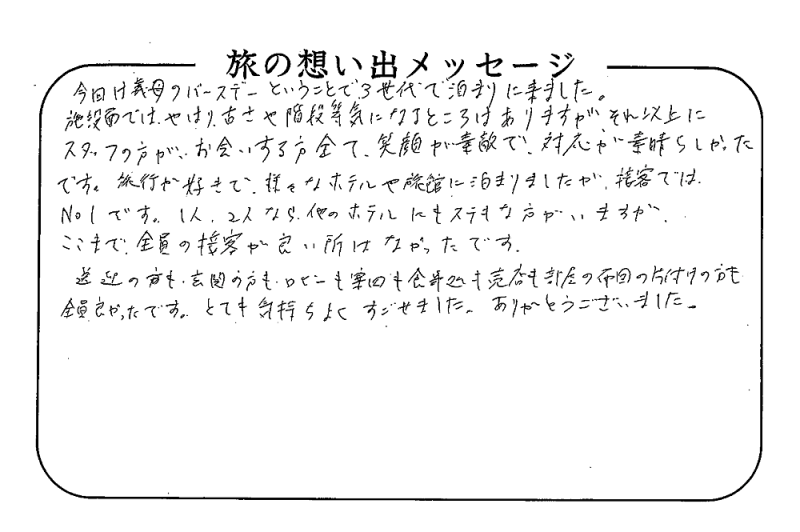 旅の想い出メッセージ
今回は義母のバースデーということで3世代で泊まりに来ました。
施設面では、やはり、古さや階段等気になるところはありますが、それ以上に
スタッフの方が、お会いする方全て、笑顔が素敵で、対応が素晴らしかった
です。旅行が好きで、様々なホテルや旅館に泊まりましたが、接客では
No1です。1人、2人なら、他のホテルにもステキな方がいますが、
ここまで、全員の接客が良い所はなかったです。
送迎の方も、玄関の方も、ロビーも、も食事処も売店も部屋の布団の片付けの方も
全員良かったです。とても気持ちよくすごせました。ありがとうございました。